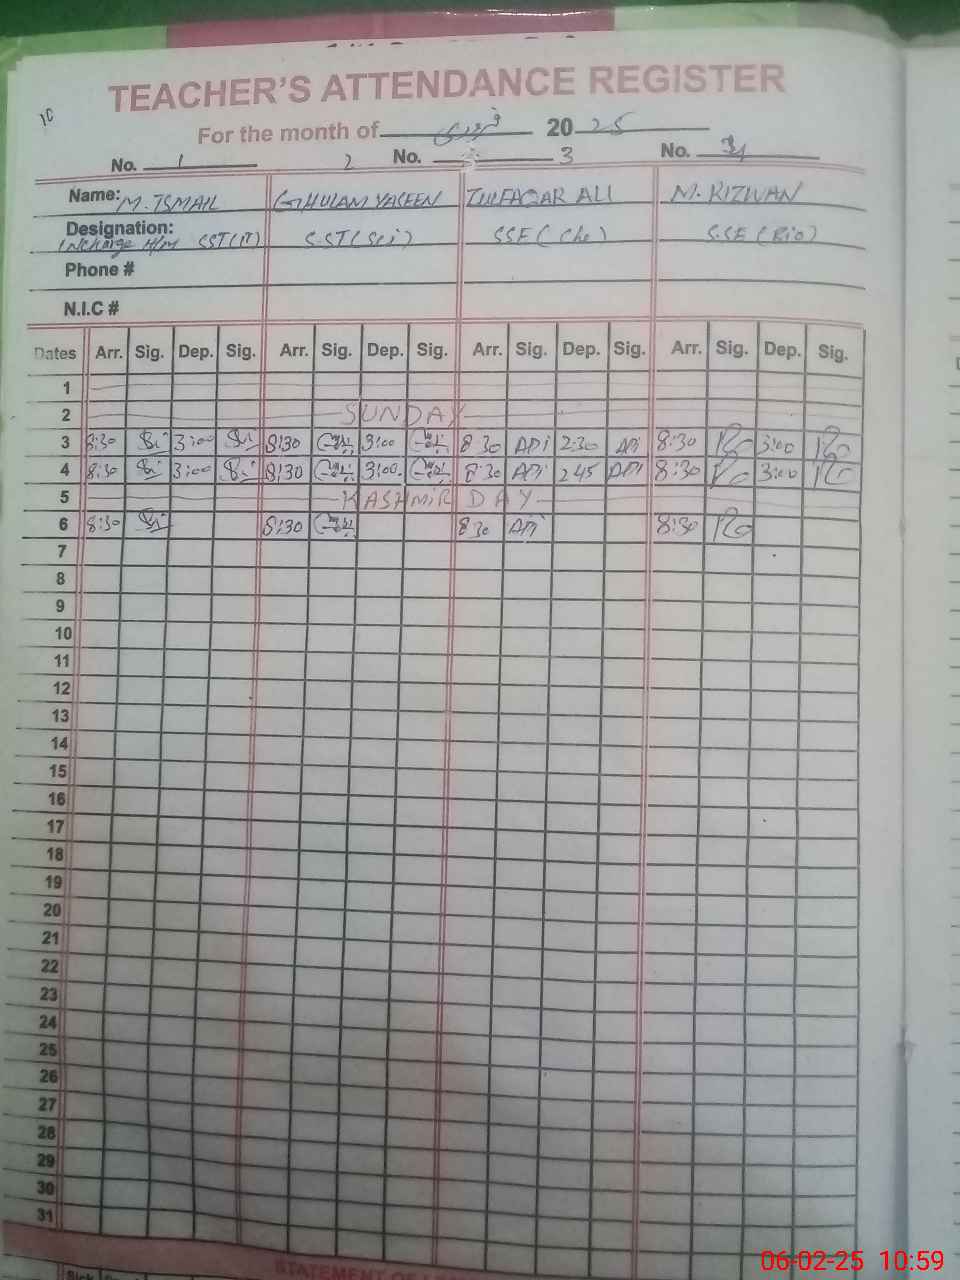 10
TEACHER'S ATTENDANCE REGISTER
For the month of فروری 2025
No. 1 2 No. 3 No. 4
Name: M. ISMAIL GHULAM YASEEN ZULFAQAR ALI M. RIZWAN
Designation:
Incharge H/M SST(IT) S.ST(Sci) SSE(Che) S.SE(Bio)
Phone #
N.I.C #
Dates Arr. Sig. Dep. Sig. Arr. Sig. Dep. Sig. Arr. Sig. Dep. Sig. Arr. Sig. Dep. Sig.
1
2 SUNDAY
3 8:30 3:00 8:30 3:00 8 30 APi 2:30 APi 8:30 3:00
4 8:30 3:00 8:30 3:00 8:30 APi 2 45 APi 8:30 3:00
5 KASHMIR DAY
6 8:30 8:30 8 30 APi 8:30
7
8
9
10
11
12
13
14
15
16
17
18
19
20
21
22
23
24
25
26
27
28
29
30
31
STATEMENT OF
Sick
06-02-25 10:59